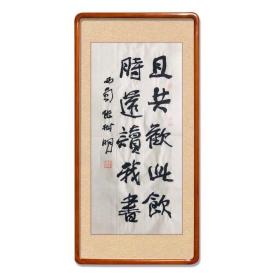 且共歡此飲
時還讀我書